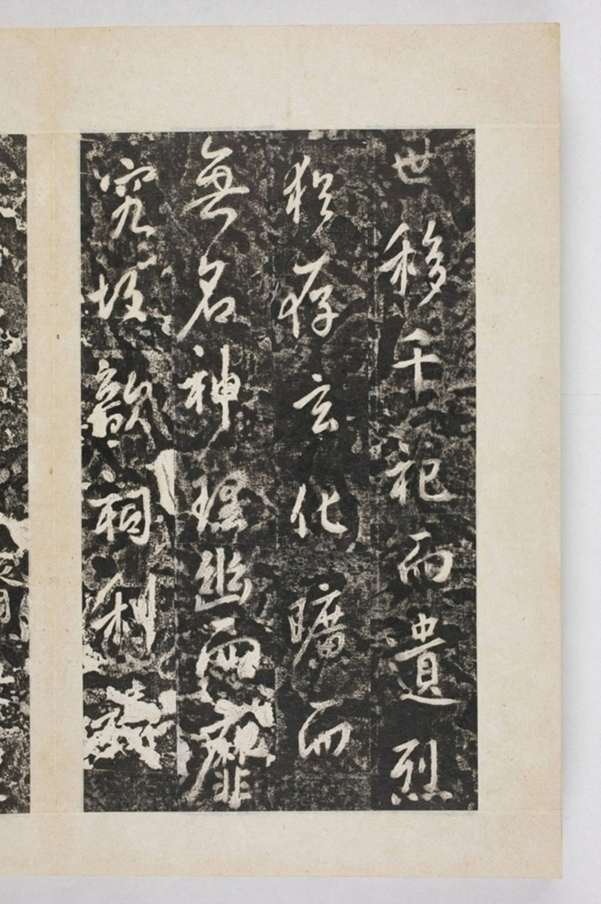 世移千祀而遺烈
猶存玄化曠而
無名神理幽而靡
究故歆祠利